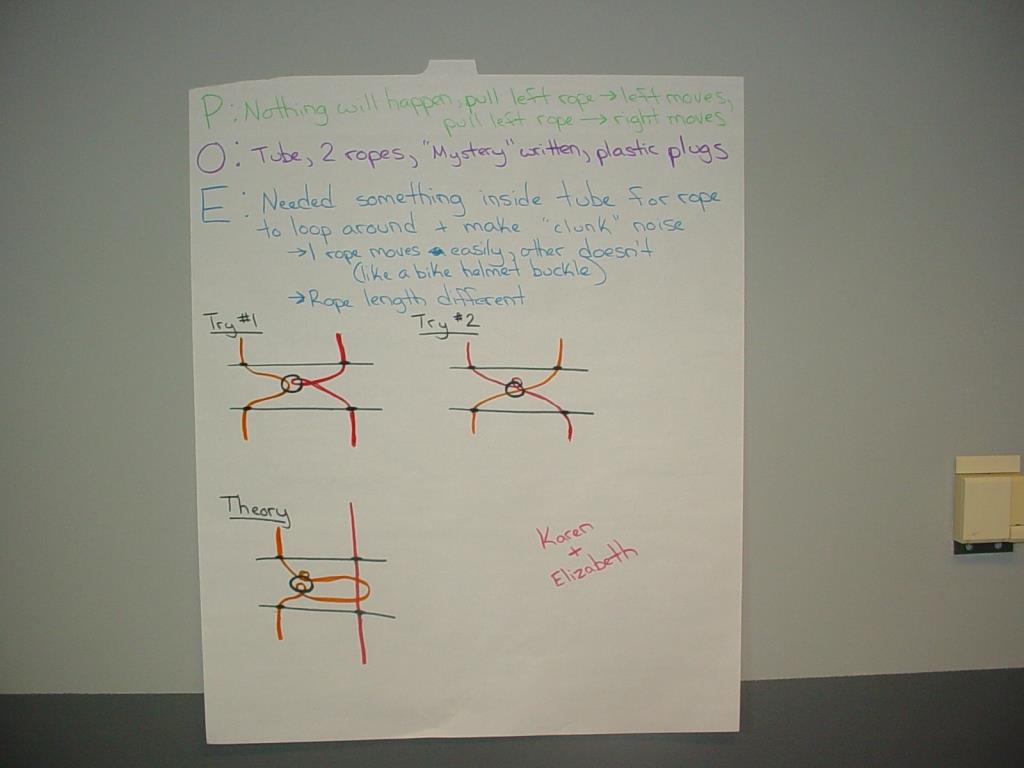 P: Nothing will happen, pull left rope → left moves,
pull left rope → right moves
O: Tube, 2 ropes, "Mystery" written, plastic plugs
E: Needed something inside tube for rope
to loop around + make "clunk" noise
→ 1 rope moves easily, other doesn't
(like a bike helmet buckle)
→ Rope length different
Try #1
Try #2
Theory
Karen
+
Elizabeth